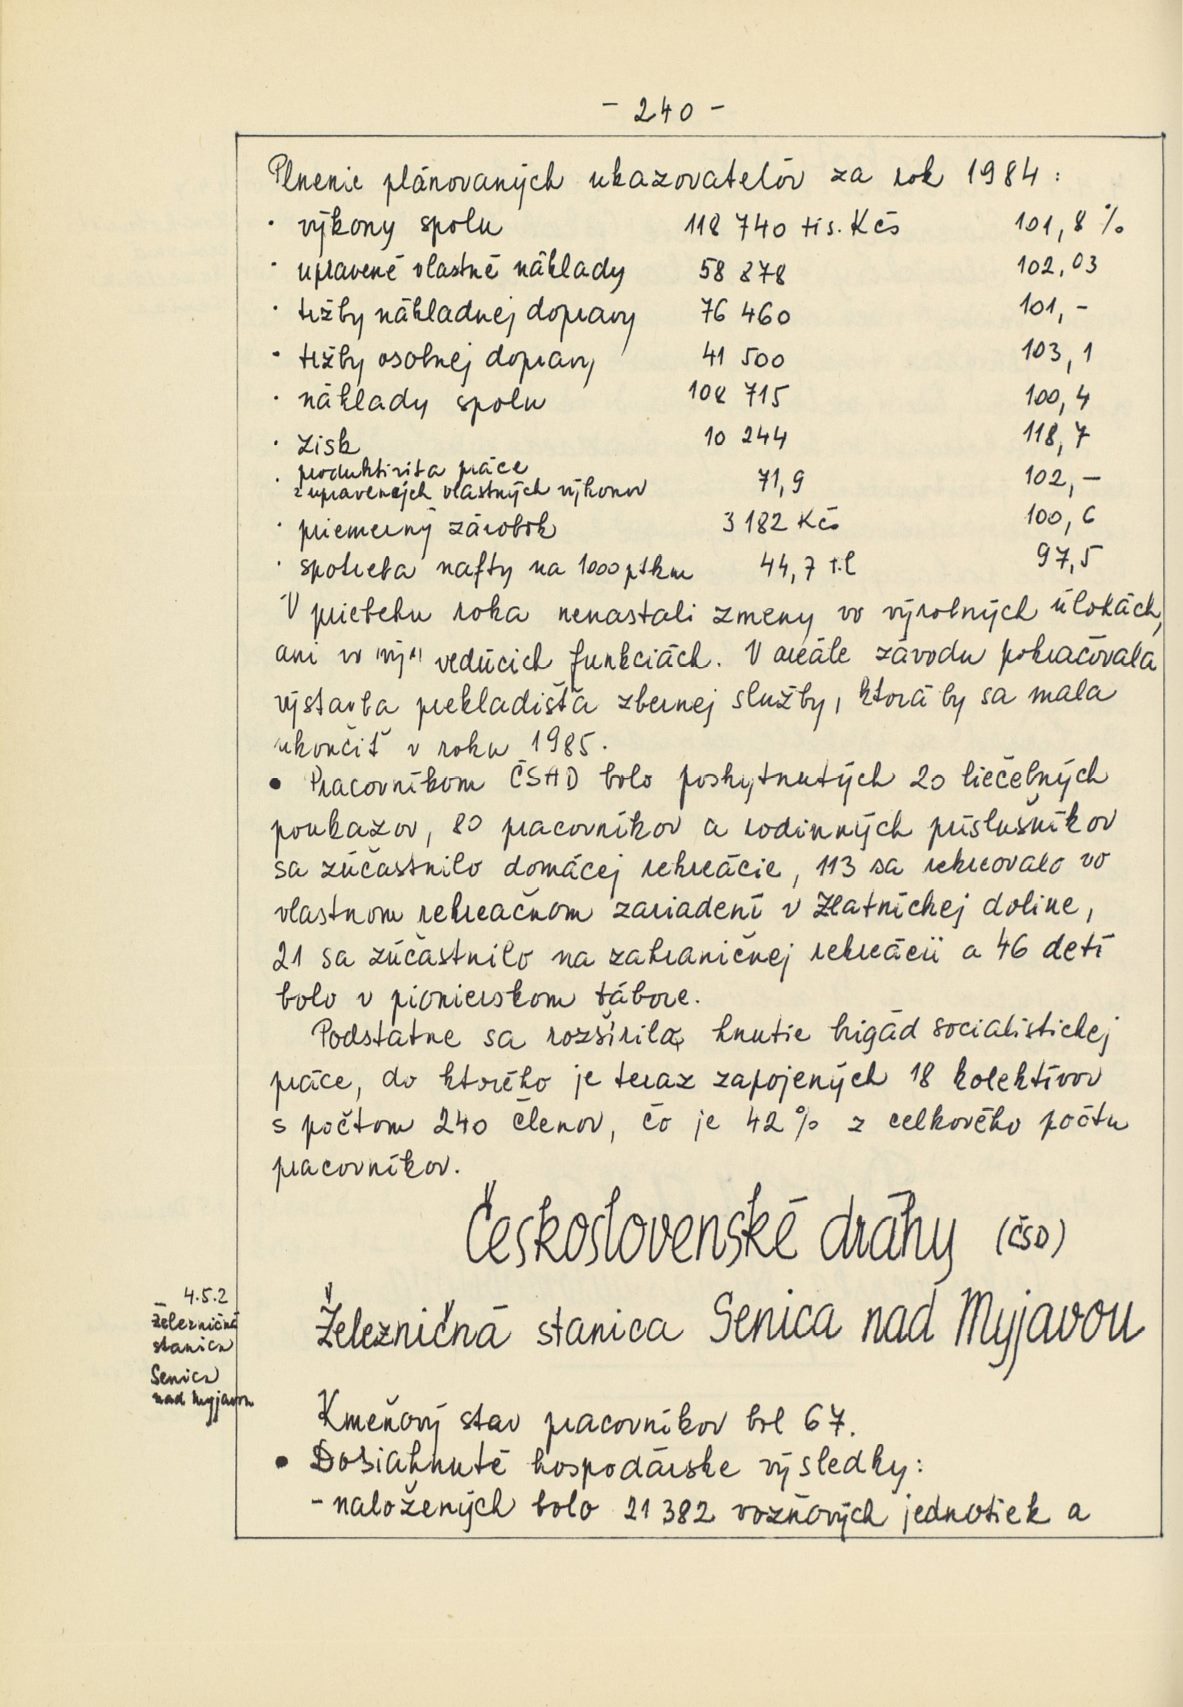 - 240 -
Plnenie plánovaných ukazovatelóv za rok 1984:
· výkony spolu 118 740 tis. Kčs 101,8 %
· upravené vlastné náklady 58 878 102,03
· tržby nákladnej dopravy 76 460 101,-
· tržby osobnej dopravy 41 500 103,1
· náklady spolu 108 715 100,4
· zisk 10 244 118,7
· produktivita práce
z upravených vlastných výkonov 71,9 102,-
· priemerný zárobok 3 182 Kčs 100,6
· spotreba nafty na 1000 ptkm 44,7 t.l 97,5
V priebehu roka nenastali zmeny vo výrobných úlohách,
ani vo vedúcich funkciách. V areále závodu pokračovala
výstavba prekladišťa zbernej služby, ktorá by sa mala
ukončiť v roku 1985.
• Pracovníkom ČSAD bolo poskytnutých 20 liečebných
poukazov, 80 pracovníkov a rodinných príslušníkov
sa zúčastnilo domácej rekreácie, 113 sa rekreovalo vo
vlastnom rekreačnom zariadení v Zlatníckej doline,
21 sa zúčastnilo na zahraničnej rekreácii a 46 detí
bolo v pionierskom tábore.
Podstatne sa rozšírilo hnutie brigád socialistickej
práce, do ktorého je teraz zapojených 18 kolektívov
s počtom 240 členov, čo je 42% z celkového počtu
pracovníkov.
Československé dráhy (ČSD)
4.5.2
Železničná
stanica
Senica
nad Myjavou
Železničná stanica Senica nad Myjavou
Kmeňový stav pracovníkov bol 67.
• Dosiahnuté hospodárske výsledky:
- naložených bolo 21 382 vozňových jednotiek a